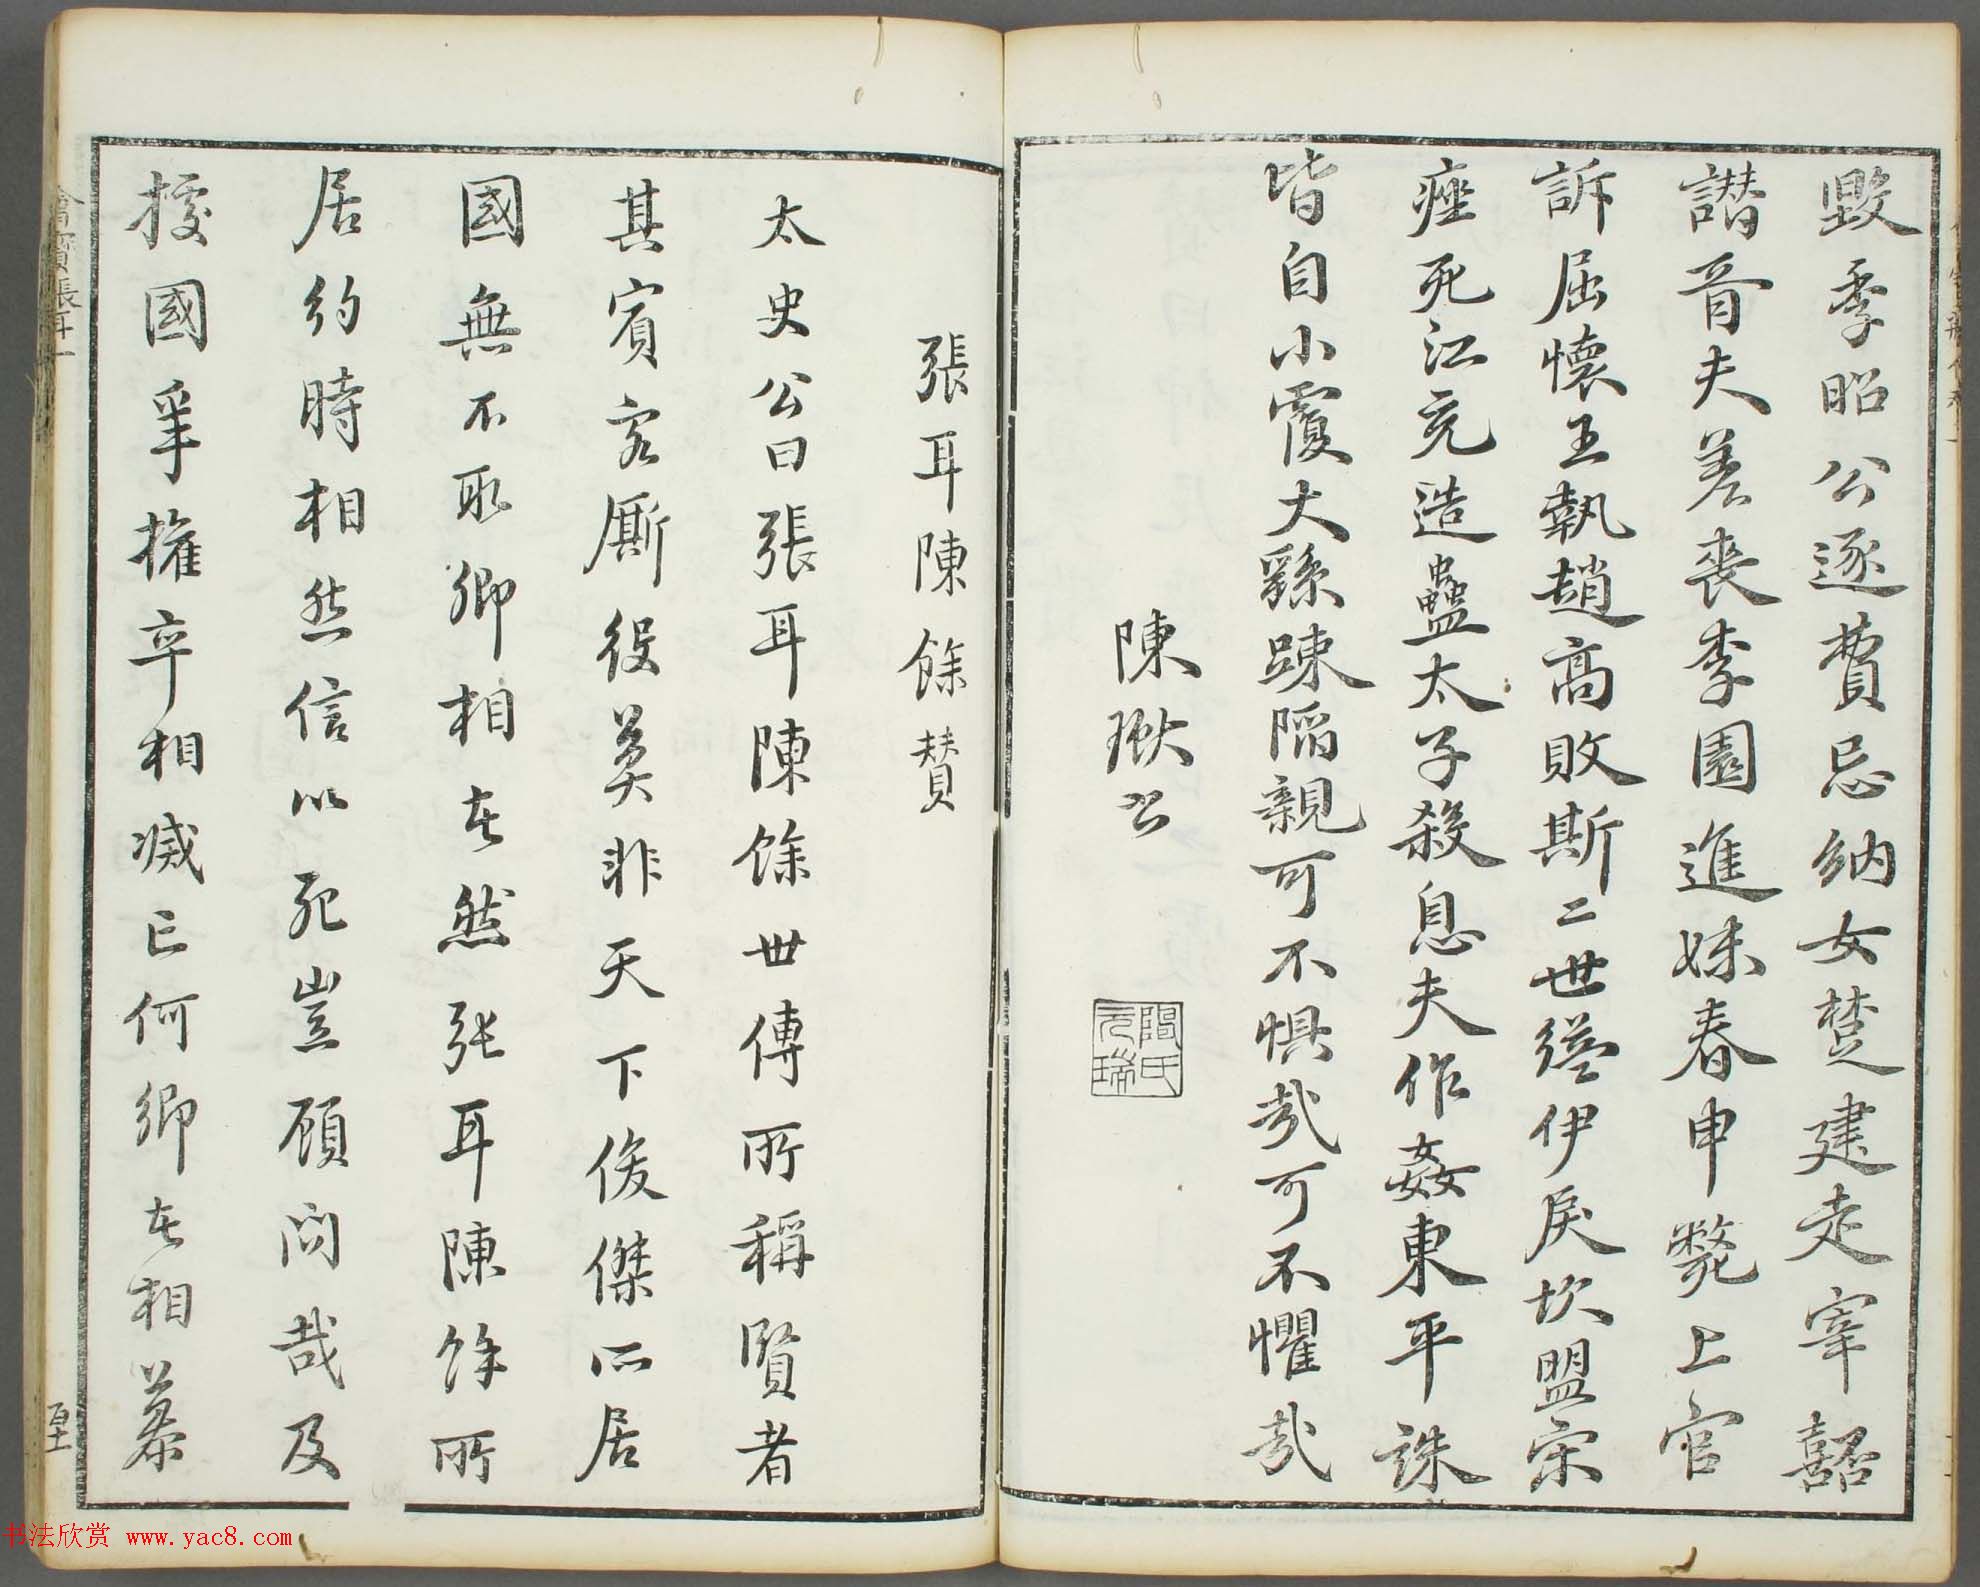 毀季昭公逐費忌納女楚建走宰嚭
譖胥夫差喪李園進妹春申斃上官
訴屈懷王執趙高敗斯二世縊伊戾坎盟宋
痤死江充造蠱太子殺息夫作姦東平誅
皆自小覆大繇踈陷親可不懼哉可不懼哉
陳瓛公
閻氏元瑞
張耳陳餘贊
太史公曰張耳陳餘世傳所稱賢者
其賓客厮役莫非天下俊傑所居
國無不取卿相者然張耳陳餘所
居約時相然信以死豈顧問哉及
據國爭權卒相滅亡何鄉者相慕
书法欣赏 www.yac8.com